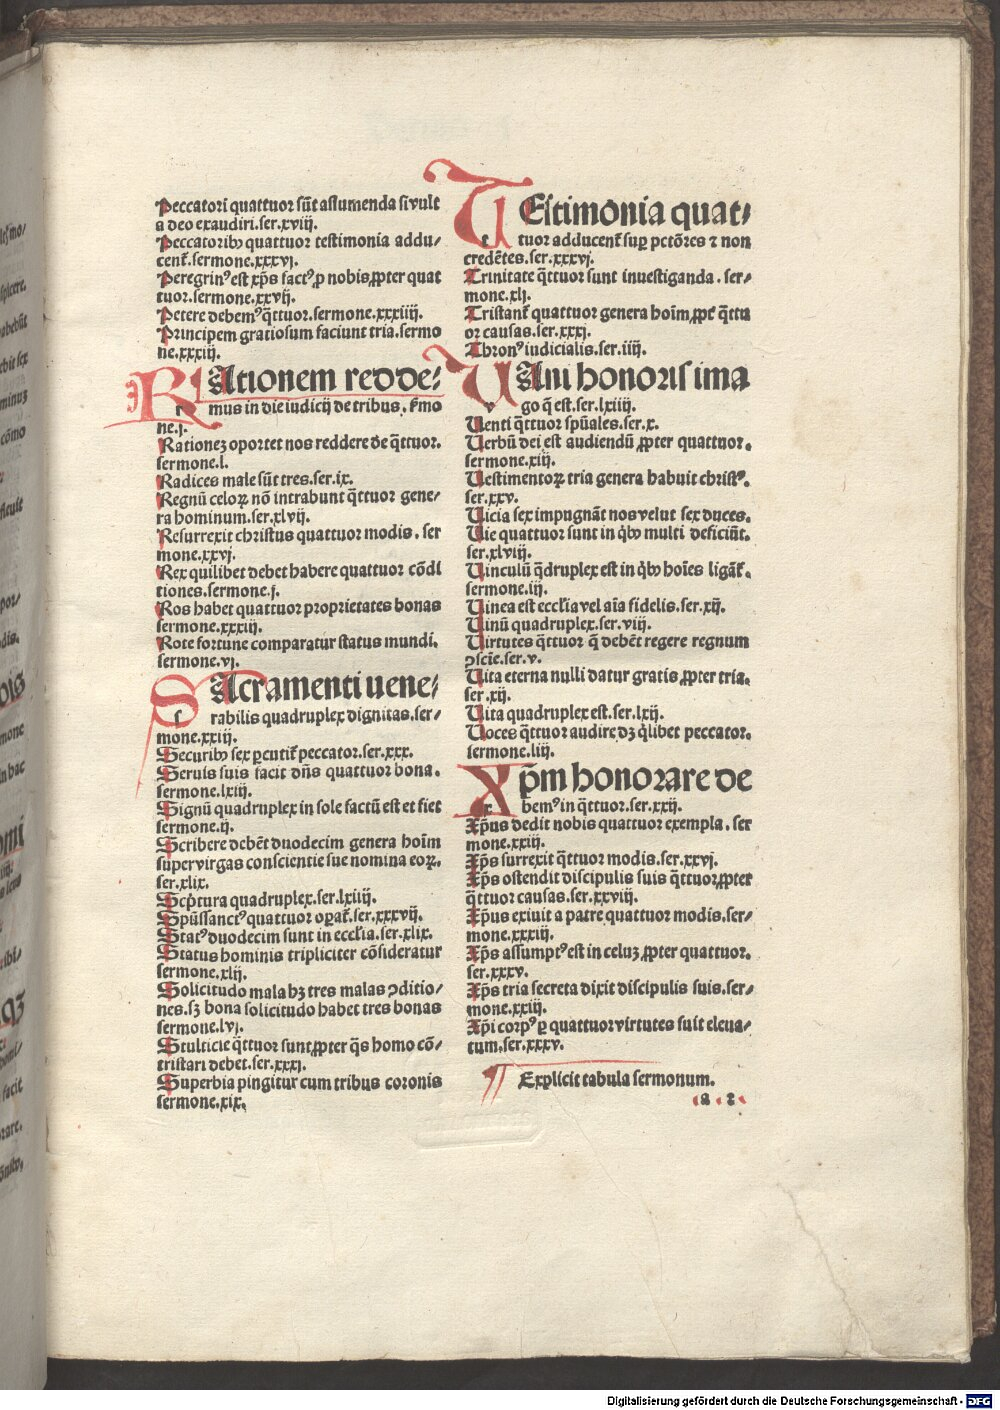 Peccatorī quattuor sūt assumenda si vult
a deo exaudiri.ser.xviij.
Peccatoribꝫ quattuor testimonia addu/
cent̄.sermone.xxxvj.
Peregrinꝰ est xp̄s factꝰ ꝓ nobis ꝓpter quat
tuor.sermone.xxvij.
Petere debemꝰ q̄ttuor.sermone.xxxiiij.
Principem gratiosum faciunt tria.sermo
ne.xxxiij.
RAtionem redde/
mus in die iudicij de tribus. ẜmo
ne.j.
Rationeꝫ oportet nos reddere de q̄ttuor.
sermone.l.
Radices male sūt tres.ser.ix.
Regnū celoꝝ nō intrabunt q̄ttuor gene/
ra hominum.ser.xlvij.
Resurrexit christus quattuor modis. ser
mone.xxvj.
Rex quilibet debet habere quattuor cōdi
tiones.sermone.j.
Ros habet quattuor proprietates bonas
sermone.xxxiij.
Rote fortune comparatur status mundi.
sermone.vj.
SAcramenti uene/
rabilis quadruplex dignitas.ser/
mone.xxiij.
Securibꝫ sex ꝑcutit̄ peccator.ser.xxx.
Seruis suis facit dn̄s quattuor bona.
sermone.lxiij.
Signū quadruplex in sole factū est et fiet
sermone.ij.
Scribere debēt duodecim genera hoīm
super virgas conscientie sue nomina eoꝝ.
ser.xlix.
Scp̄tura quadruplex.ser.lxiiij.
Spūssanctꝰ quattuor oꝑat̄.ser.xxxvij.
Statꝰ duodecim sunt in eccl'ia.ser.xlix.
Status hominis tripliciter cōsideratur
sermone.xlij.
Solicitudo mala hꝫ tres malas ꝯditio/
nes.sꝫ bona solicitudo habet tres bonas
sermone.lvj.
Stulticie q̄ttuor sunt ꝓpter q̄s homo cō/
tristari debet.ser.xxxj.
Superbia pingitur cum tribus coronis
sermone.xix.
TEstimonia quat/
tuor adducent̄ suꝑ pctōres ⁊ non
credētes.ser.xxxvj.
Trinitate q̄ttuor sunt inuestiganda. ser/
mone.xlj.
Tristant̄ quattuor genera hoīm ꝓpt̄ q̄ttu
or causas.ser.xxxj.
Thronꝰ iudicialis.ser.iiij.
VAni honoris ima
go q̄ est.ser.lxiiij.
Venti q̄ttuor spūales.ser.x.
Verbū dei est audiendū ꝓpter quattuor.
sermone.xiij.
Vestimentoꝝ tria genera habuit christꝰ.
ser.xxv.
Vicia sex impugnāt nos velut sex duces.
Vie quattuor sunt in qͥbꝫ multi deficiūt.
ser.xlviij.
Vinculū q̄druplex est in qͥbꝫ hoīes ligāt̄.
sermone.lij.
Vinea est eccl'ia vel aīa fidelis.ser.xij.
Vinū quadruplex.ser.viij.
Virtutes q̄ttuor q̄ debēt regere regnum
ꝯsciē.ser.v.
Vita eterna nulli datur gratis ꝓpter tria.
ser.xij.
Vita quadruplex est.ser.lxij.
Voces q̄ttuor audire dꝫ qͥlibet peccator.
sermone.liij.
Xp̄m honorare de
bemꝰ in q̄ttuor.ser.xxij.
Xp̄us dedit nobis quattuor exempla. ser
mone.xxiij.
Xp̄s surrexit q̄ttuor modis.ser.xxvj.
Xp̄s ostendit discipulis suis q̄ttuor ꝓpter
q̄ttuor causas.ser.xxviij.
Xp̄us exiuit a patre quattuor modis.ser/
mone.xxxiij.
Xp̄s assumptꝰ est in celuꝫ ꝓpter quattuor.
ser.xxxv.
Xp̄s tria secreta dixit discipulis suis.ser/
mone.xxiij.
Xp̄i corpꝰ ꝑ quattuor virtutes fuit eleua/
tum.ser.xxxv.
¶ Explicit tabula sermonum.
a 2
Digitalisierung gefördert durch die Deutsche Forschungsgemeinschaft - DFG